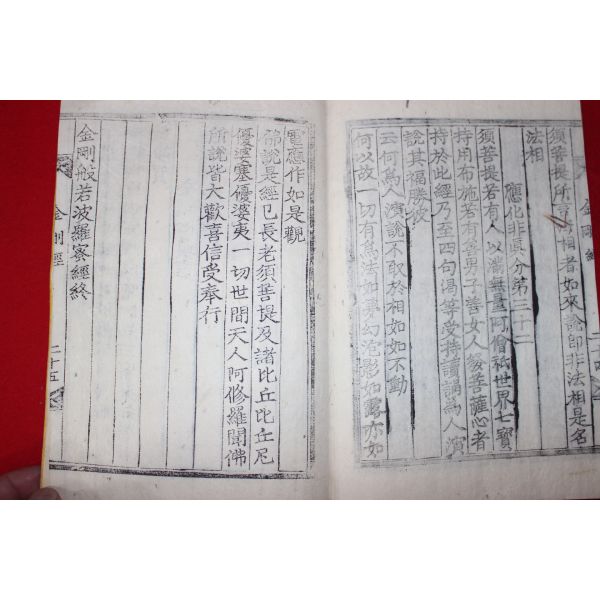 金剛經
須菩提所言法相者如來說即非法相是名
法相
應化非眞分第三十二
須菩提若有人以滿無量阿僧祇世界七寶
持用布施若有善男子善女人發菩薩心者
持於此經乃至四句偈等受持讀誦爲人演
說其福勝彼
云何爲人演說不取於相如如不動
何以故一切有爲法如夢幻泡影如露亦如
電應作如是觀
佛說是經已長老須菩提及諸比丘比丘尼
優婆塞優婆夷一切世間天人阿修羅聞佛
所說皆大歡喜信受奉行
金剛般若波羅蜜經終
金剛經 二十五